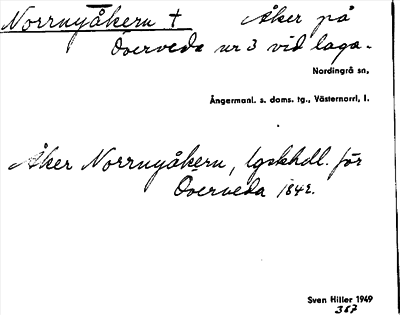 Norrnyåkern † Åker på
Överveda nr 3 vid laga.
Nordingrå sn,
Ångermanl. s. doms. tg., Västernorrl. l.
Åker Norrnyåkern, lgskhdl. för
Överveda 1842.
Sven Hiller 1949
367